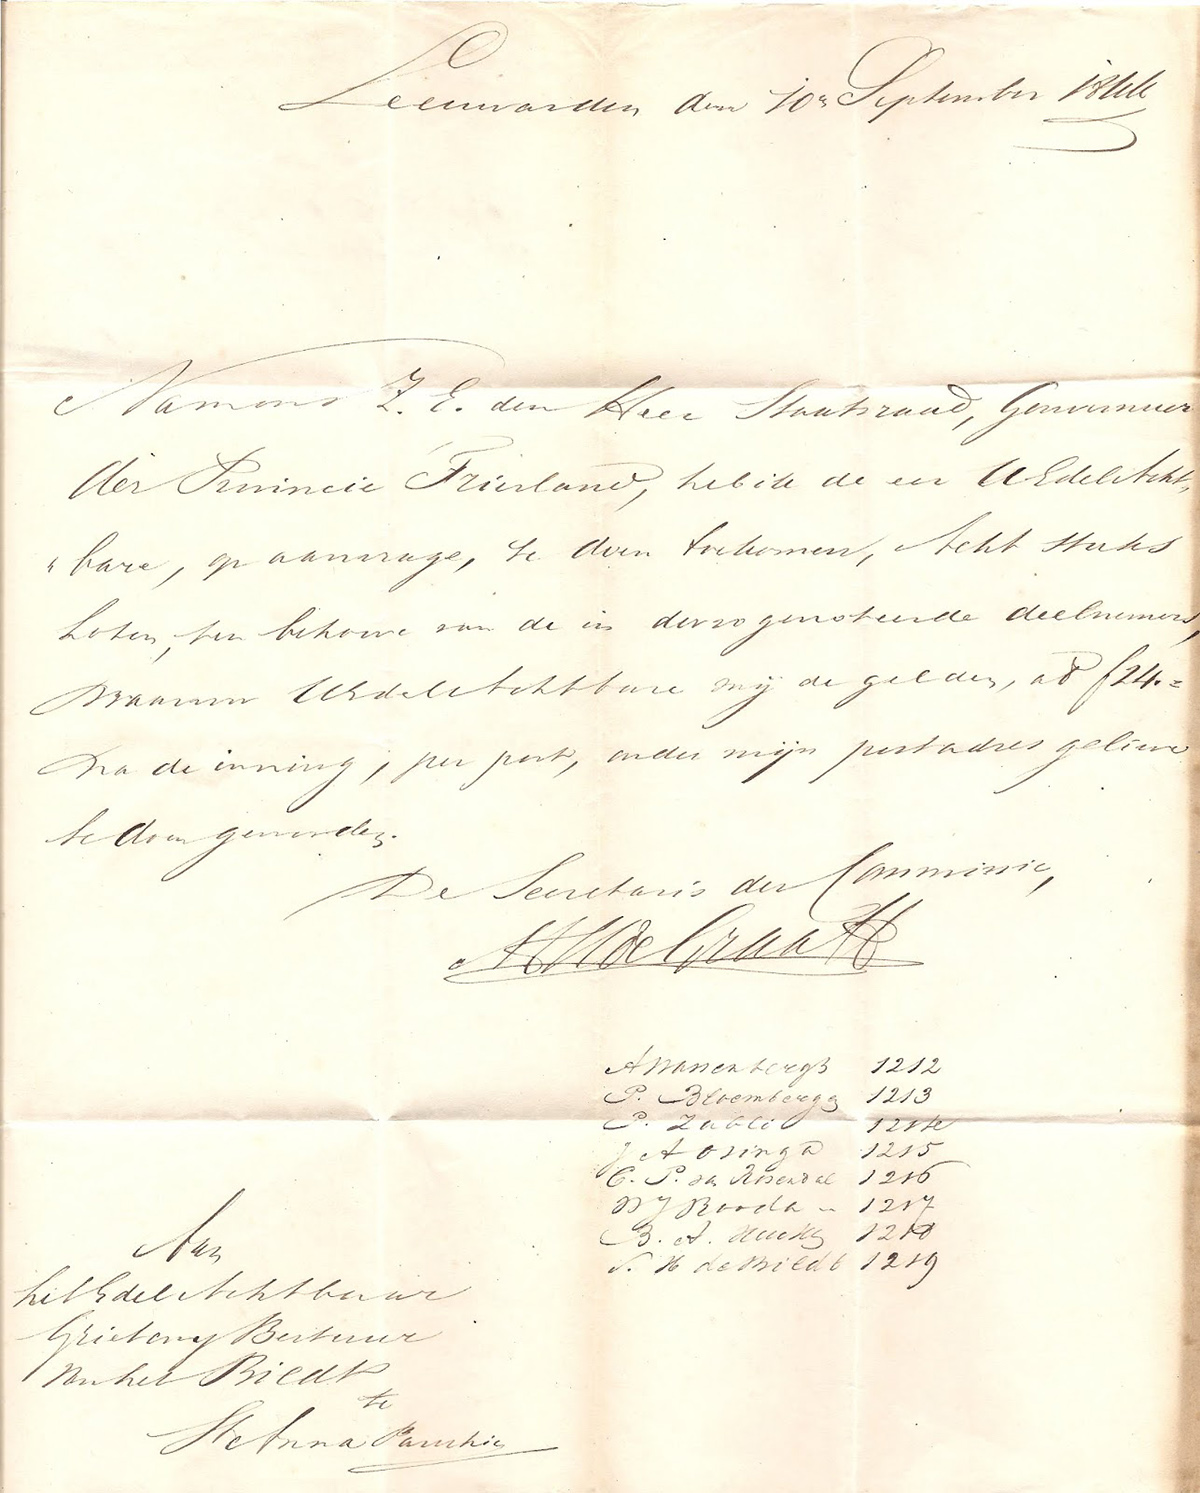 Leeuwarden den 10n September 1844
Namens Z. E. den Heer Staatsraad, Gouverneur
der Provincie Friesland, heb ik de eer UEdelAcht-
"bare, op aanvrage, te doen toekomen, Acht stuks
Loten, ten behoeve van de in dorso genoteerde deelnemers,
waarvan UEdelAchtbare mij de gelden, ad f 24.=
na de inning, per post, onder mijn postadres gelieve
te doen geworden.
De Secretaris der Commissie,
de Graaff
A Wassenbergh 1212
P. Bloembergen 1213
P. 1214
J A Osinga 1215
C. P. van Rosendal 1216
D J Roorda 1217
B. A. 1218
N. H de Bildt 1219
Aan
het Edel Achtbaar
Grieteny Bestuur
van het Bildt
te
St Anna Parochie